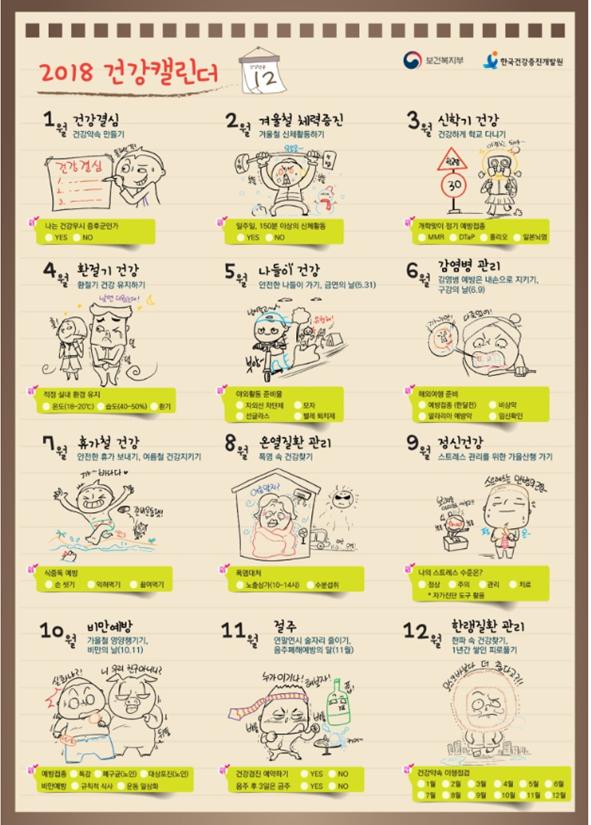 2018 건강캘린더
12
보건복지부
한국건강증진개발원
1월 건강결심
건강약속 만들기
건강결심
1.
2.
3.
나는 건강무시 증후군인가
YES NO
2월 겨울철 체력증진
겨울철 신체활동하기
일주일, 150분 이상의 신체활동
YES NO
3월 신학기 건강
건강하게 학교 다니기
30
개학맞이 정기 예방접종
MMR DTaP 폴리오 일본뇌염
4월 환절기 건강
환절기 건강 유지하기
적정 실내 환경 유지
온도(18~20℃) 습도(40~50%) 환기
5월 나들이 건강
안전한 나들이 가기, 금연의 날(5.31)
야외활동 준비물
자외선 차단제 모자
선글라스 벌레 퇴치제
6월 감염병 관리
감염병 예방은 내손으로 지키기,
구강의 날(6.9)
해외여행 준비
예방접종 (한달전) 비상약
말라리아 예방약 임신확인
7월 휴가철 건강
안전한 휴가 보내기, 여름철 건강지키기
식중독 예방
손 씻기 익혀먹기 끓여먹기
8월 온열질환 관리
폭염 속 건강찾기
폭염대처
노출삼가(10~14시) 수분섭취
9월 정신건강
스트레스 관리를 위한 가을산행 가기
나의 스트레스 수준은?
정상 주의 관리 치료
* 자가진단 도구 활용
10월 비만예방
가을철 영양챙기기,
비만의 날(10.11)
니 우리 친구아니니?
예방접종 독감 폐구균(노인) 대상포진(노인)
비만예방 규칙적 식사 운동 일상화
11월 절주
연말연시 술자리 줄이기,
음주폐해예방의 달(11월)
누가 이기나! 해보자!
건강검진 예약하기 YES NO
음주 후 3일은 금주 YES NO
12월 한랭질환 관리
한파 속 건강찾기,
1년간 쌓인 피로풀기
건강약속 이행점검
1월 2월 3월 4월 5월 6월
7월 8월 9월 10월 11월 12월